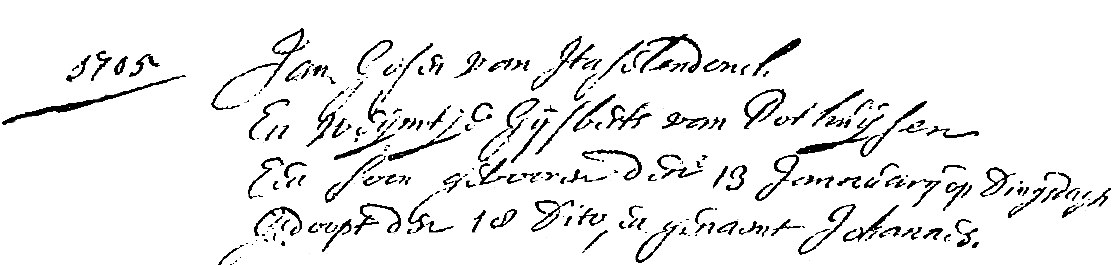 1705 Jan Gosen van Hasselendonck
En Weijmtje Gijsberts van Dolhuijsen
Een soen gebooren den 13 Jannuarij op Dingsdagh
Gedoopt den 18 Dito, en genaemt Johannes.